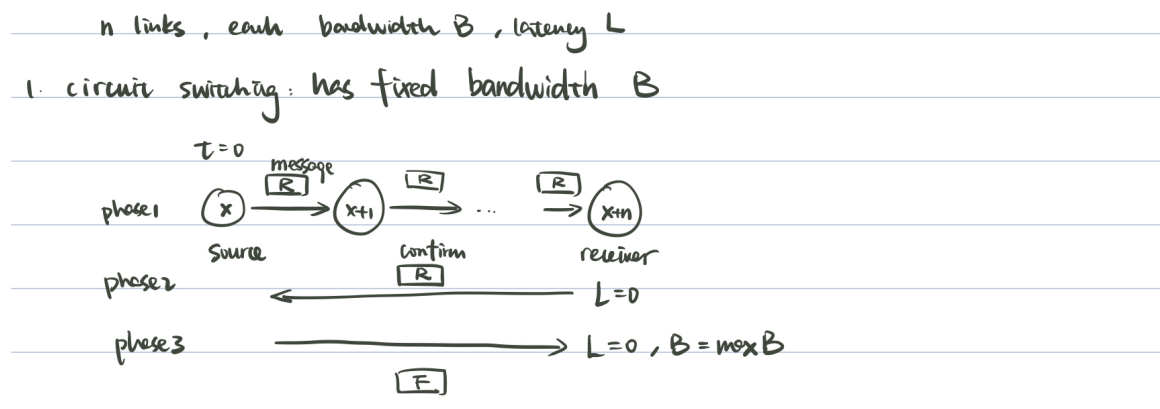 n links, each bandwidth B, latency L
1. circuit switching: has fixed bandwidth B
t=0
message
R R R
phase1 x x+1 ... x+n
source confirm receiver
R
phase2 L=0
phase3 L=0, B=maxB
F